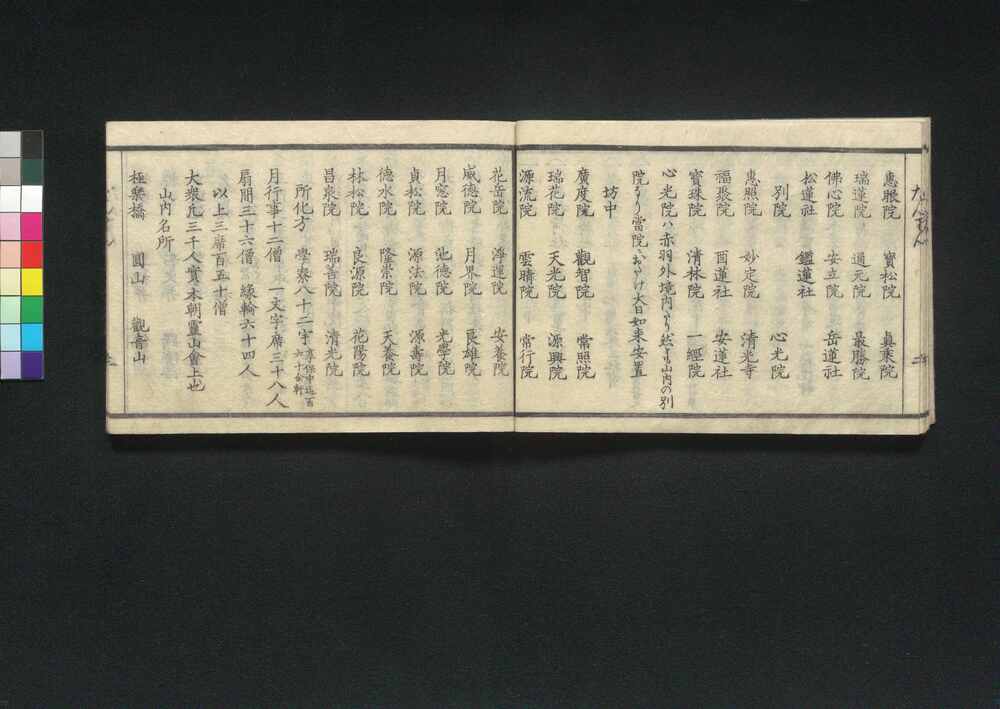 惠眼院 寳松院 眞乘院
瑞蓮院 通元院 最勝院
佛心院 安立院 岳蓮社
松蓮社 鑑蓮社
別院 心光院
惠照院 妙定院 清光寺
福聚院 酉蓮社 安蓮社
寳珠院 清林院 一經院
心光院ハ赤羽外境内
院 當院 大日如来安置
坊中
廣度院 觀智院 常照院
瑞花院 天光院 源興院
源流院 雲晴院 常行院
花岳院 淨運院 安養院
威徳院 月界院 良雄院
月窓院 池徳院 光學院
貞松院 源法院 源壽院
徳水院 隆崇院 天養院
林松院 良源院 花陽院
昌泉院 瑞善院 清光院
所化方 學寮八十二宇
月行事十二僧 一文字席三十八人
扇間三十六僧 縁輪六十四人
以上三席百五十僧
大衆凢三千人實本朝靈山會上也
山内名所
極樂橋 圓山 觀音山